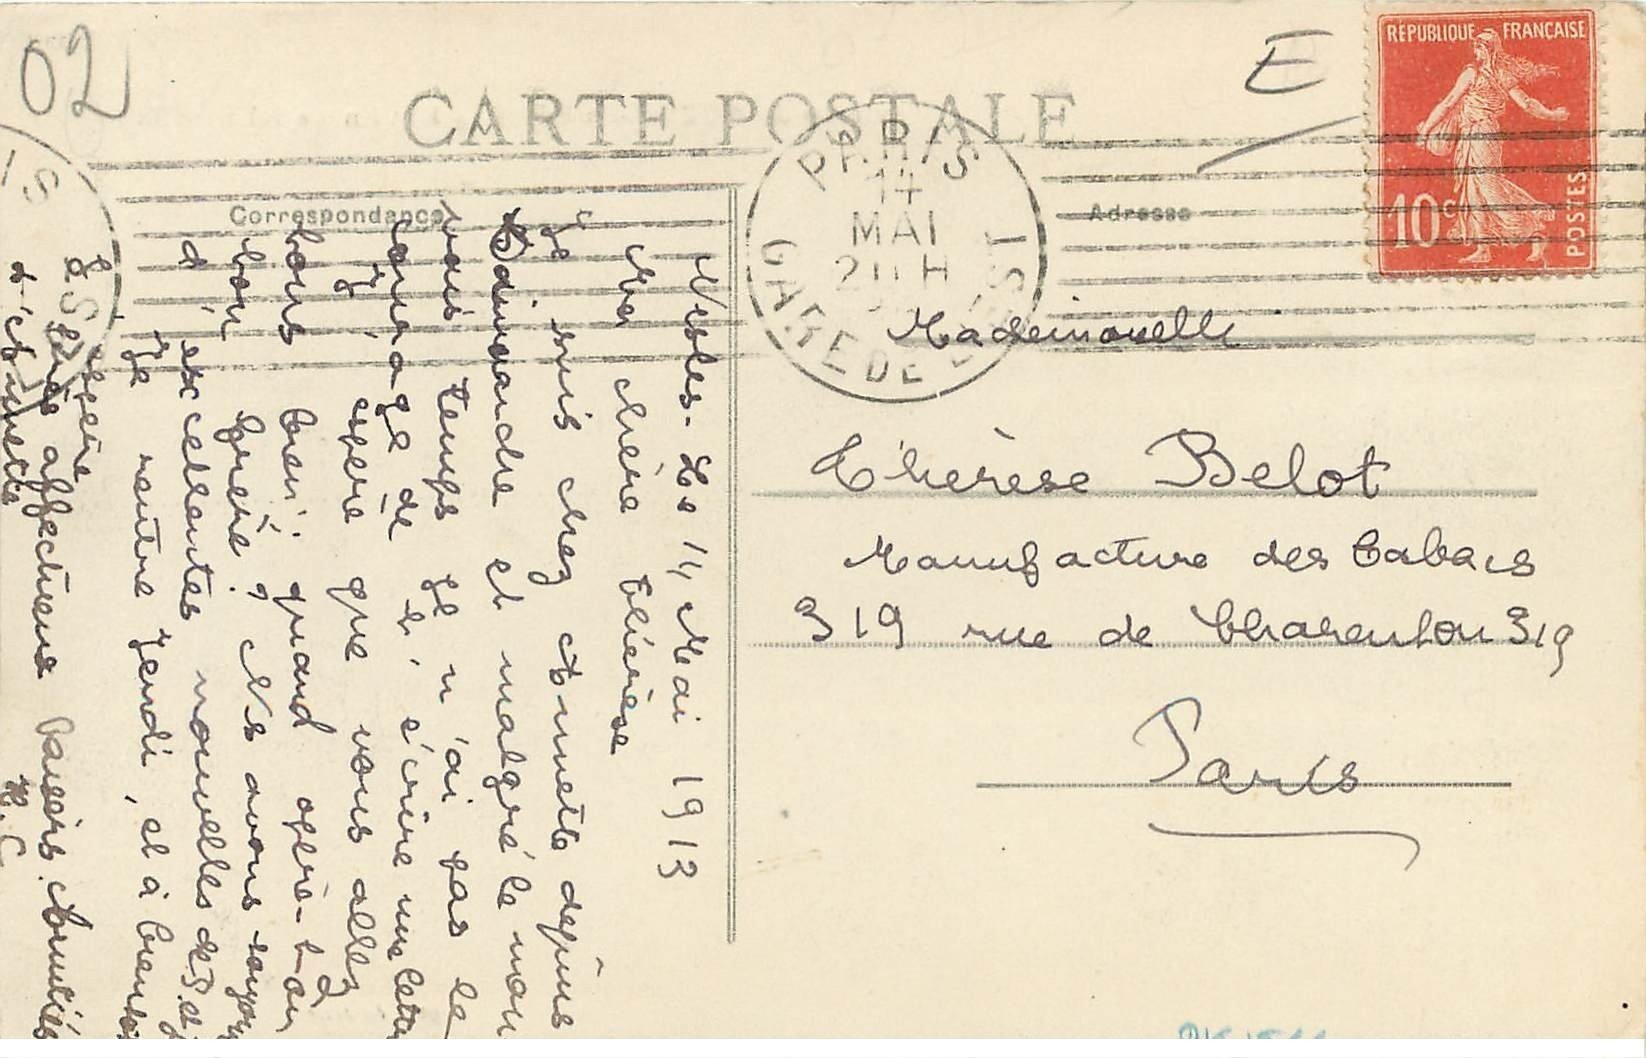 02
E
CARTE POSTALE
RÉPUBLIQUE FRANÇAISE
10c
POSTES
PARIS
14
MAI
20 H
GARE DE L'EST
IS
Correspondance
Adresse
Mademoiselle
Thérèse Belot
Manufacture des Tabacs
319 rue de Charenton 319
Paris
Nesles. Le 14 Mai 1913
Ma chère Thérèse
Je suis chez Annette depuis
Dimanche et malgré le mau
vais temps je n'ai pas le
courage de t'écrire une lettre
J'espère que vous allez
tous bien. quand opère-t-on
bon frère? Ns avons toujours
d'excellentes nouvelles de P. et
Je rentre Jeudi, et à bientôt
j'espère
Très affectueux baisers. Amitiés
d'Annette
M. C.